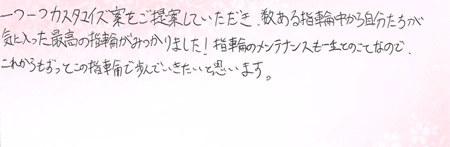 一つ一つカスタマイズ案をご提案していただき、数ある指輪中から自分たちが
気に入った最高の指輪がみつかりました！指輪のメンテナンスも一生とのことなので、
これからもずっとこの指輪で歩んでいきたいと思います。